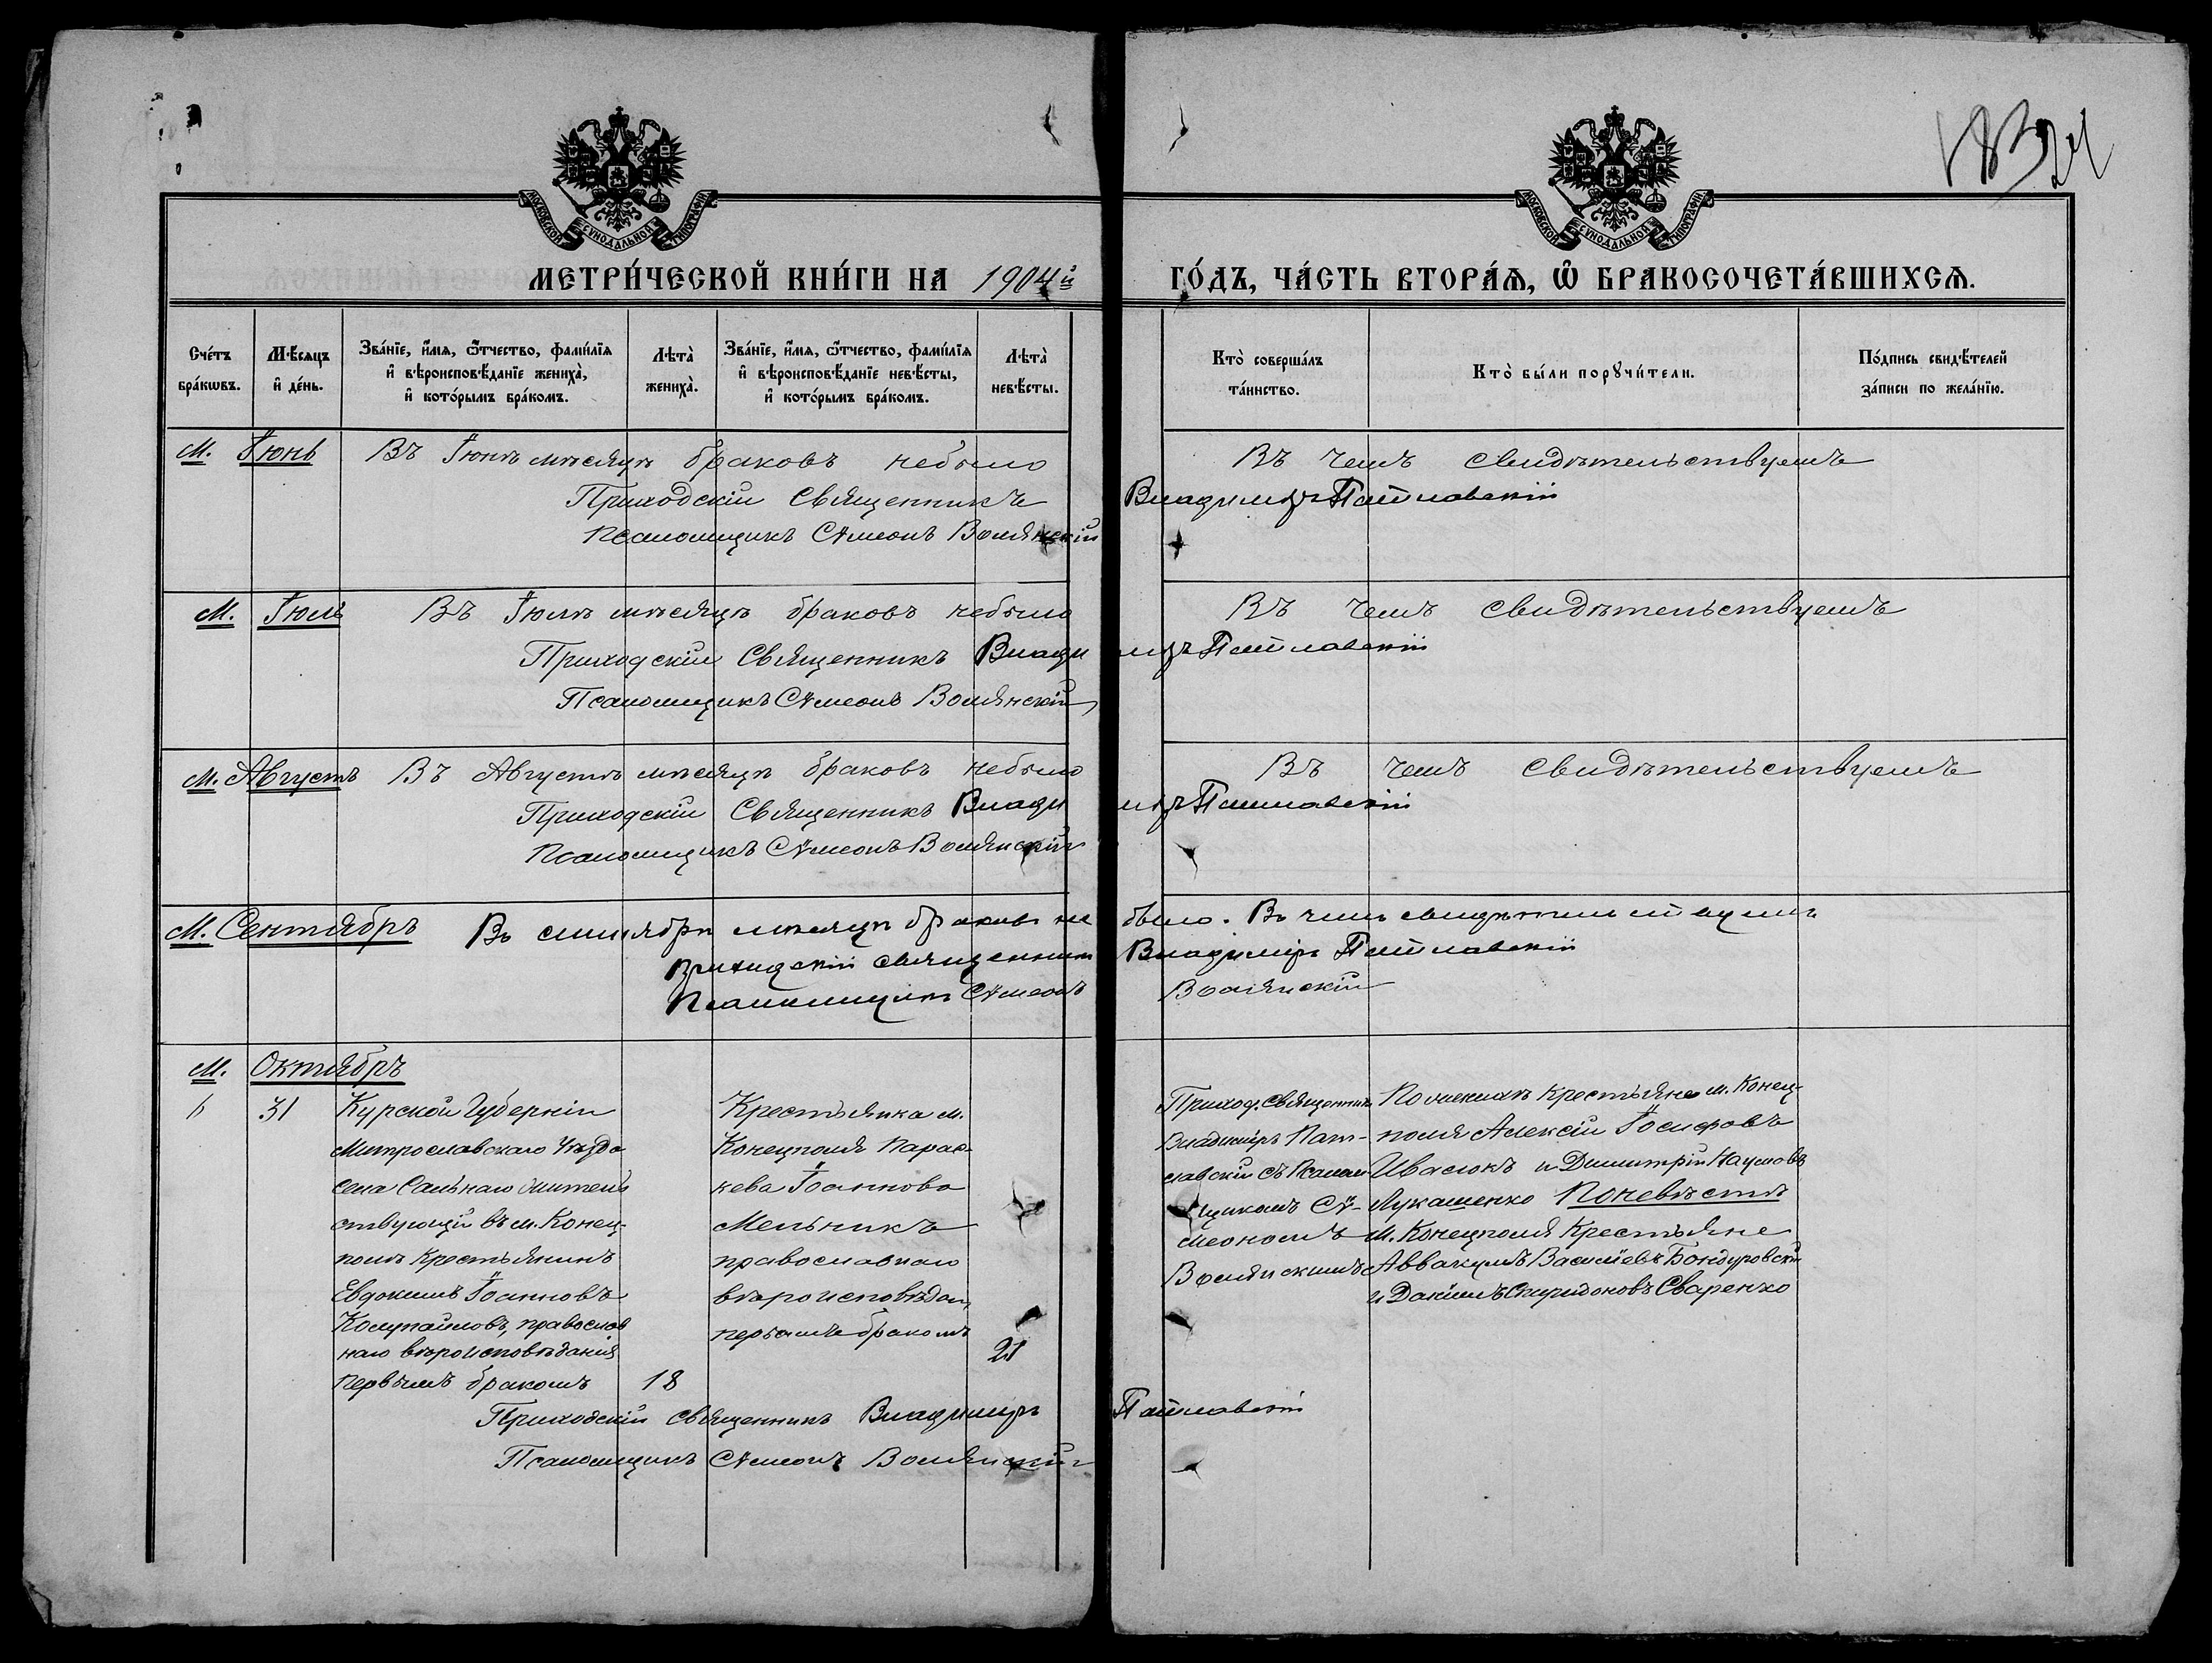 183
МОСКОВСКОЙ СѴНОДАЛЬНОЙ ТИПОГРАФІИ.
МОСКОВСКОЙ СѴНОДАЛЬНОЙ ТИПОГРАФІИ.
МЕТРИ́ЧЕСКОЙ КНИ́ГИ НА 1904й ГО́ДЪ, ЧА́СТЬ ВТОРА́Ѧ, Ѽ БРАКОСОЧЕТА́ВШИХСѦ.
Сче́тъ бра́кωвъ.
М·ѣ́сѧцъ и҆ де́нь.
Зва́нїе, и҆́мѧ, ѻ҆́тчество, фами́лїѧ и҆ в·ѣроиспов·ѣ́данїе жениха̀, и҆ кото́рымъ бра́комъ.
Л·ѣта̀ жениха̀.
Зва́нїе, и҆́мѧ, ѻ҆́тчество, фами́лїѧ и҆ в·ѣроиспов·ѣ́данїе нев·ѣ́сты, и҆ кото́рымъ бра́комъ.
Л·ѣта̀ нев·ѣ́сты.
Кто̀ соверша́лъ та́инство.
Кто̀ бы́ли порꙋчи́тели.
По́дпись свид·ѣ́телей за́писи по жела́нїю.
М. Іюнь Въ Іюнѣ мѣсяцѣ браковъ небыло Въ чемъ свидѣтельствуемъ
Приходскій Священникъ Владиміръ Патлавскій
Псаломщикъ Сѵмеонъ Волянскій
М. Іюль Въ Іюлѣ мѣсяцѣ браковъ небыло Въ чемъ свидѣтельствуемъ
Приходскій Священникъ Владиміръ Патлавскій
Псаломщикъ Сѵмеонъ Волянскій
М. Августъ Въ Августѣ мѣсяцѣ браковъ небыло Въ чемъ свидѣтельствуемъ
Приходскій Священникъ Владиміръ Патлавскій
Псаломщикъ Сѵмеонъ Волянскій
М. Сентябрь Въ сентябрѣ мѣсяцѣ браковъ не было. Въ чемъ свидѣтельствуемъ
Приходскій священникъ Владиміръ Патлавскій
Псаломщикъ Сѵмеонъ Волянскій
М. Октябрь
6 31
Курской Губерніи
Уѣзда
села жительствующій въ м. Конецполѣ Крестьянинъ
Евдокимъ Іоанновъ
православнаго вѣроисповѣданія
первымъ бракомъ
18
Крестьянка м.
Конецполя Параскева Іоаннова
Мельникъ
православнаго
вѣроисповѣдан.
первымъ бракомъ
21
Приход. Священникъ
Владиміръ Патлавскій съ Псаломщикомъ Сѵмеономъ
Волянскимъ
По женихѣ Крестьяне м. Конецполя Алексій Іосифовъ
Ивасюкъ и Димитрій Наумовъ
Лукашенко По невѣстѣ
м. Конецполя Крестьяне
Аввакумъ Васильевъ Бондуровскій
и Даніилъ Спиридоновъ Сваренко
Приходскій священникъ Владиміръ Патлавскій
Псаломщикъ Сѵмеонъ Волянскій